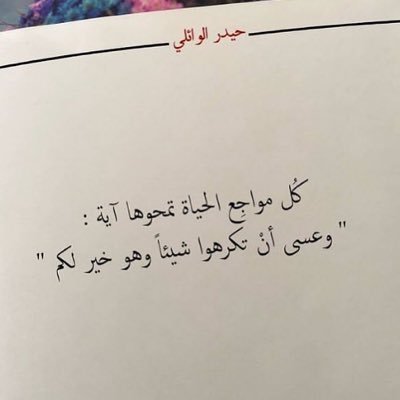 حيدر الوائلي
كُل مواجِع الحياة تمحوها آية :
" وعسى أنْ تكرهوا شيئاً وهو خير لكم "